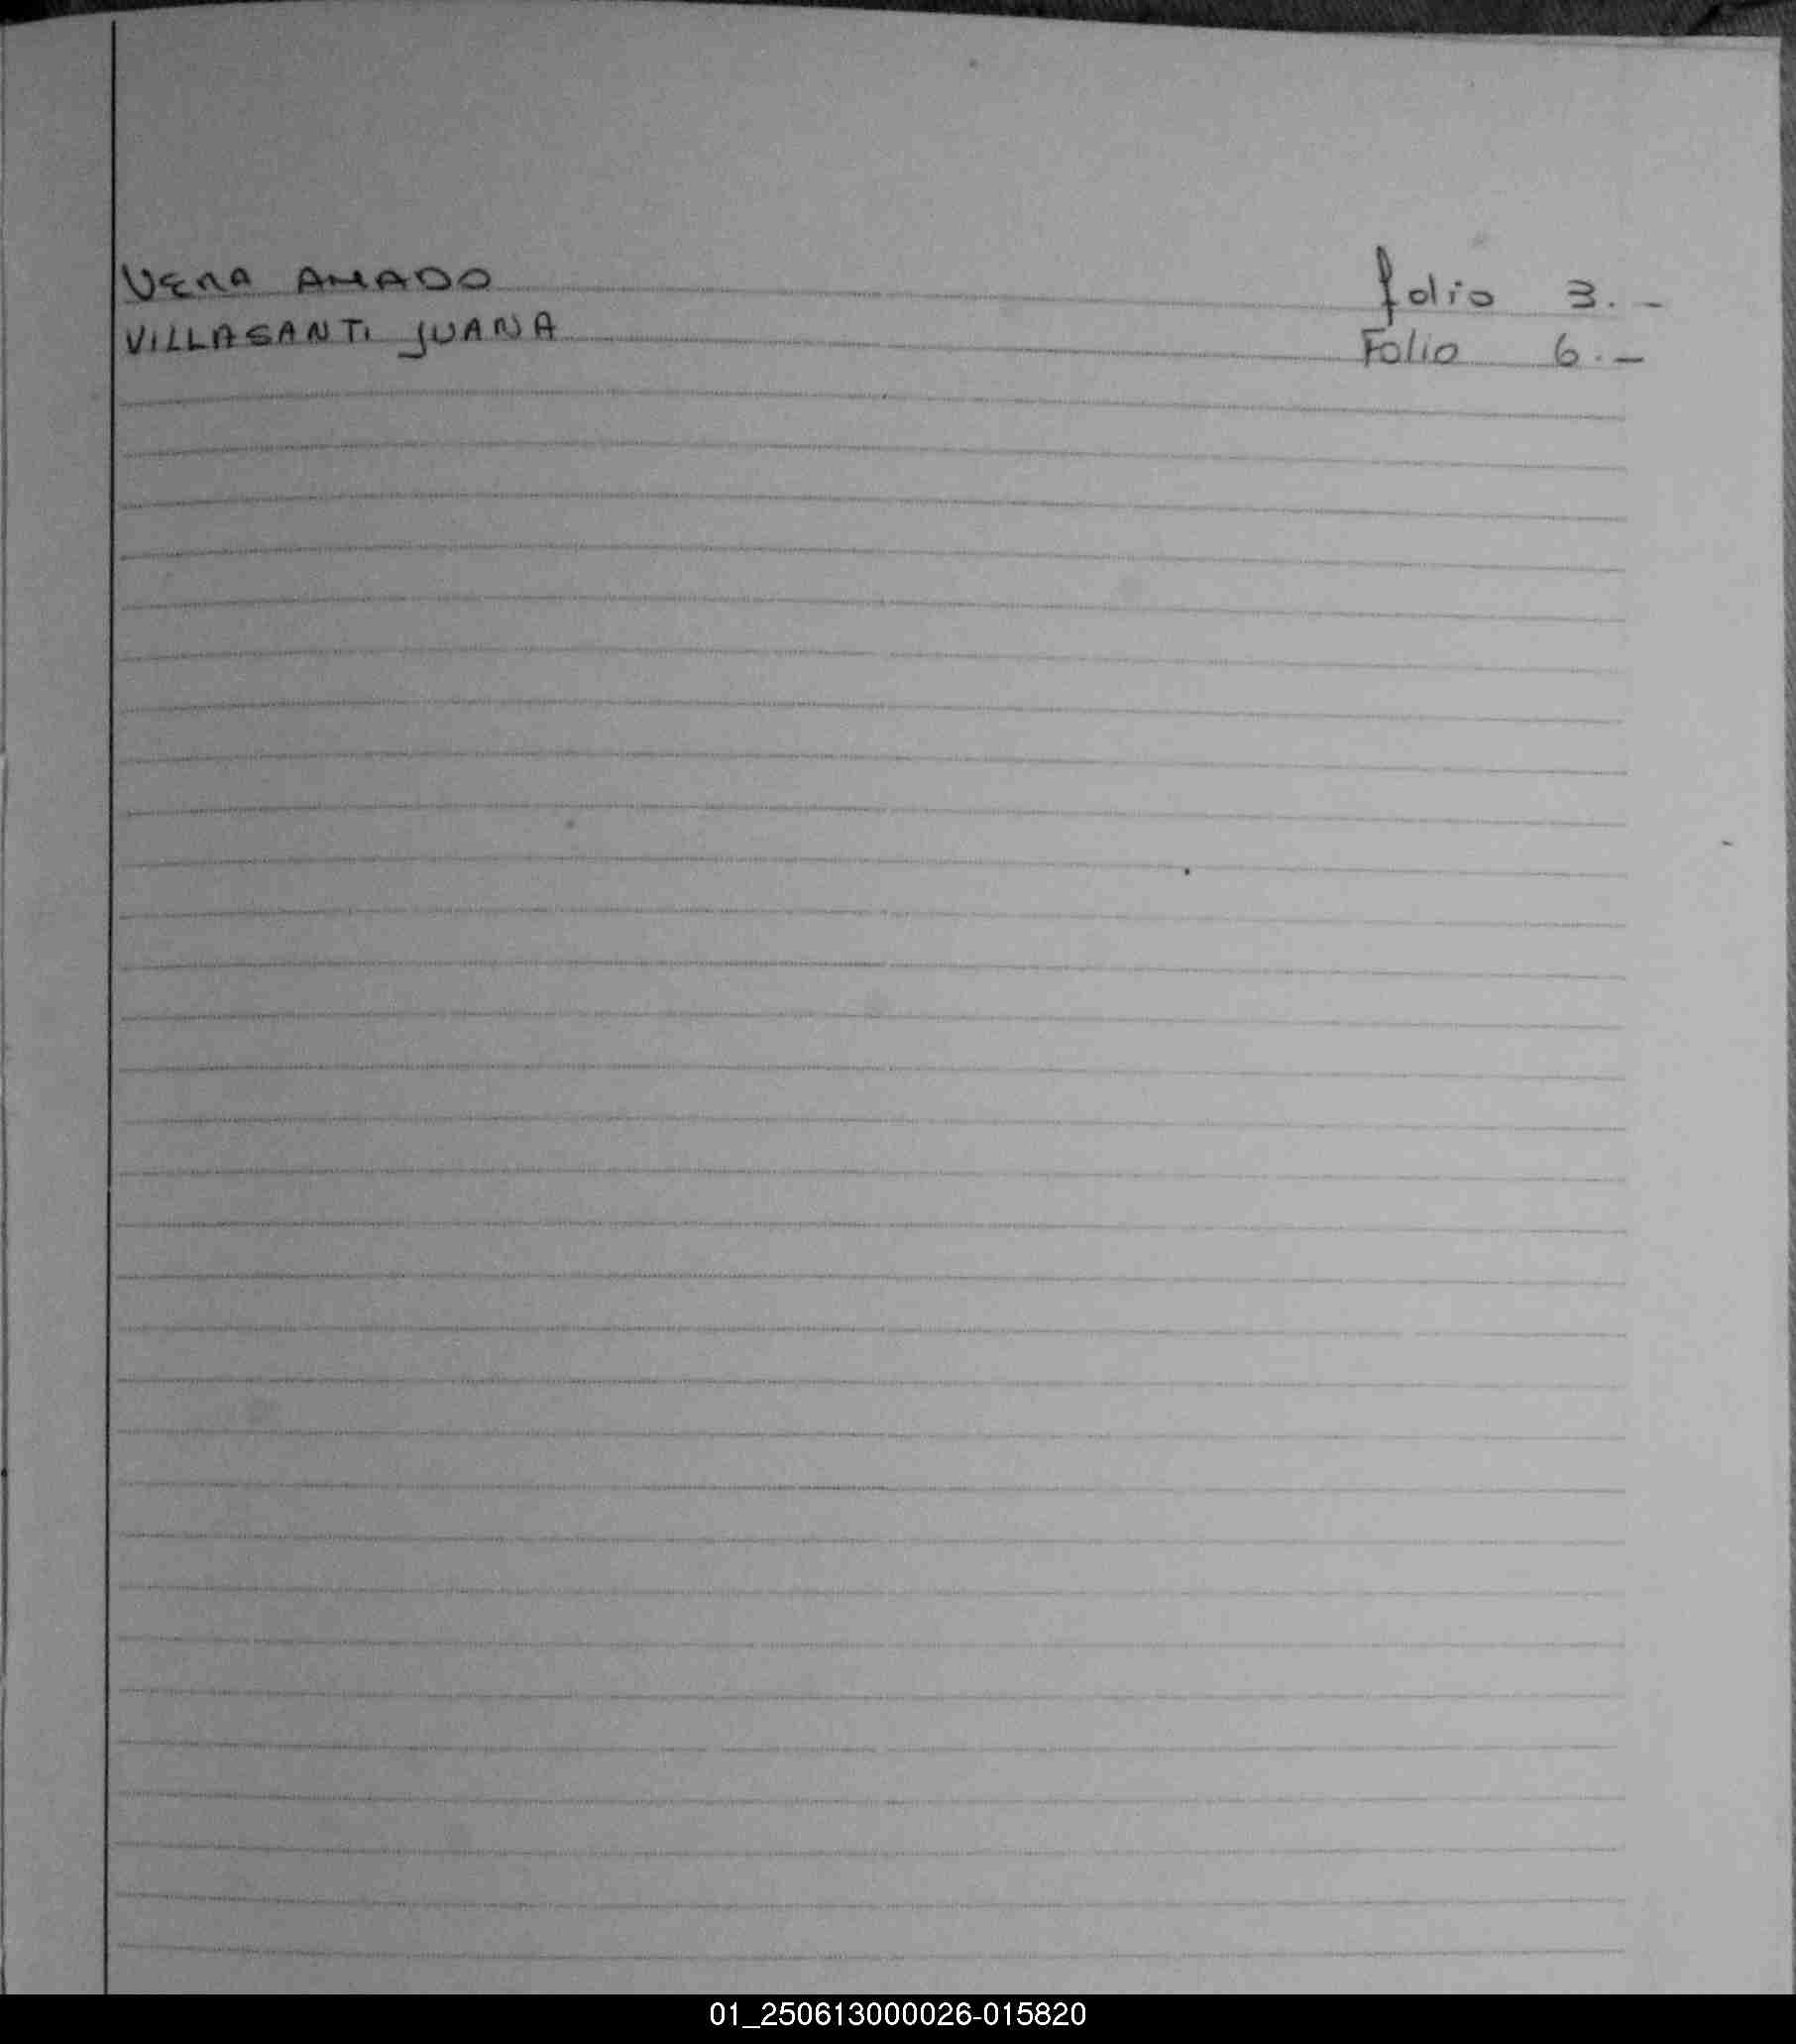 VERA AMADO folio 3. -
VILLASANTI JUANA Folio 6. -
01_250613000026-015820